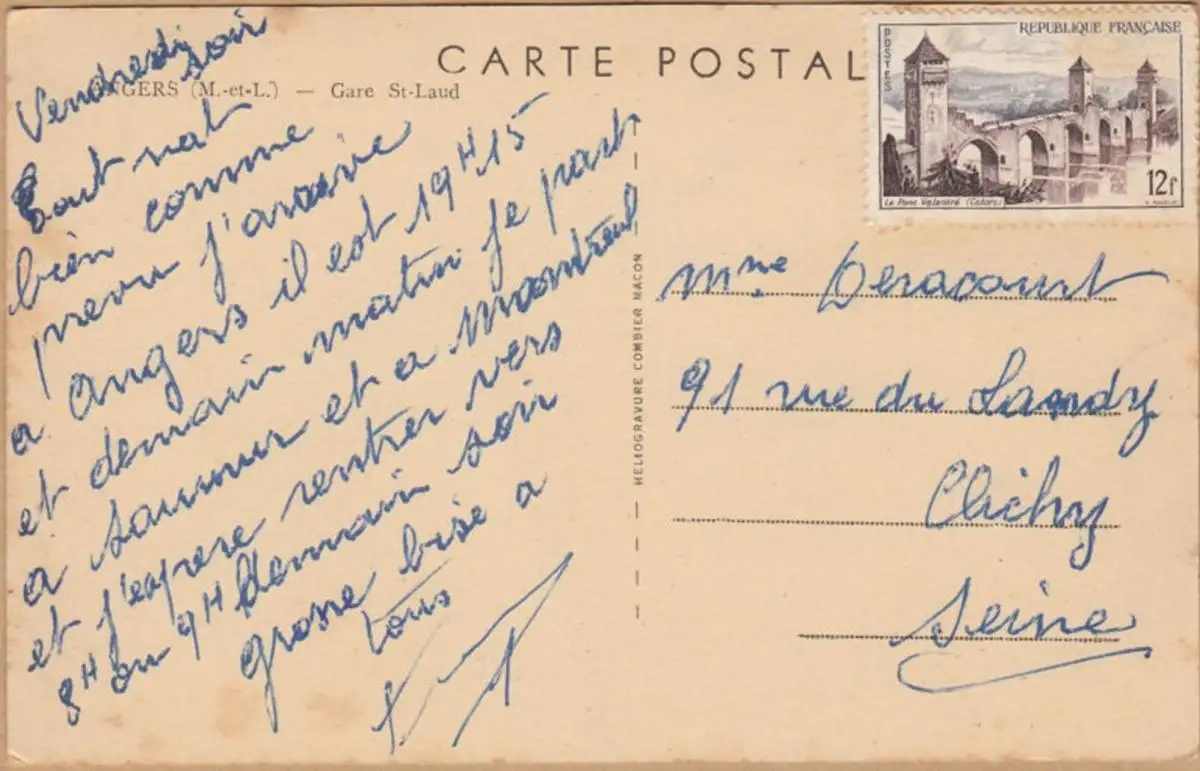 CARTE POSTAL
NGERS (M.-et-L.) — Gare St-Laud
Vendredi soir
Tout vat
bien comme
prevu j'arrive
a angers il est 19H15
et demain matin je part
a Saumur et a Montreuil
et j'espere rentrer vers
8H ou 9H demain soir
grosse bise a
tous
HELIOGRAVURE COMBIER MACON
REPUBLIQUE FRANÇAISE
POSTES
12f
Le Pont Valentré (Cahors)
Mme
91 rue du Landy
Clichy
Seine